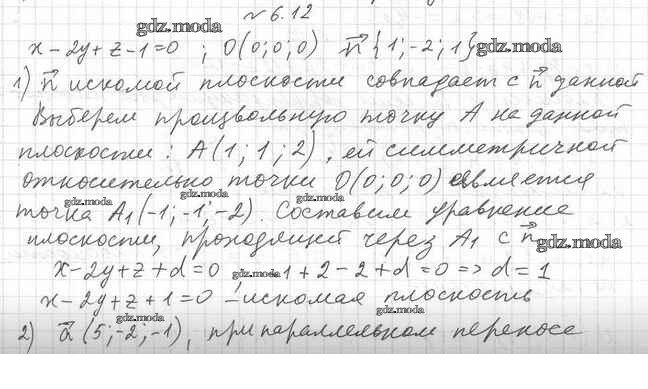 № 6.12
gdz.moda
x - 2y + z - 1 = 0 ; O(0;0;0) n⃗{1;-2;1} gdz.moda
1) n⃗ искомой плоскости совпадает с n⃗ данной
Выберем произвольную точку A на данной
плоскости: A(1; 1; 2), ей симметричной
относительно точки O(0;0;0) является
gdz.moda gdz.moda gdz.moda
точка A₁(-1;-1;-2). Составим уравнение
плоскости, проходящей через A₁ с n⃗ gdz.moda
x - 2y + z + d = 0 gdz.moda -1 + 2 - 2 + d = 0 => d = 1
x - 2y + z + 1 = 0 - искомая плоскость
gdz.moda gdz.moda
2) a⃗(5;-2;-1), при параллельном переносе